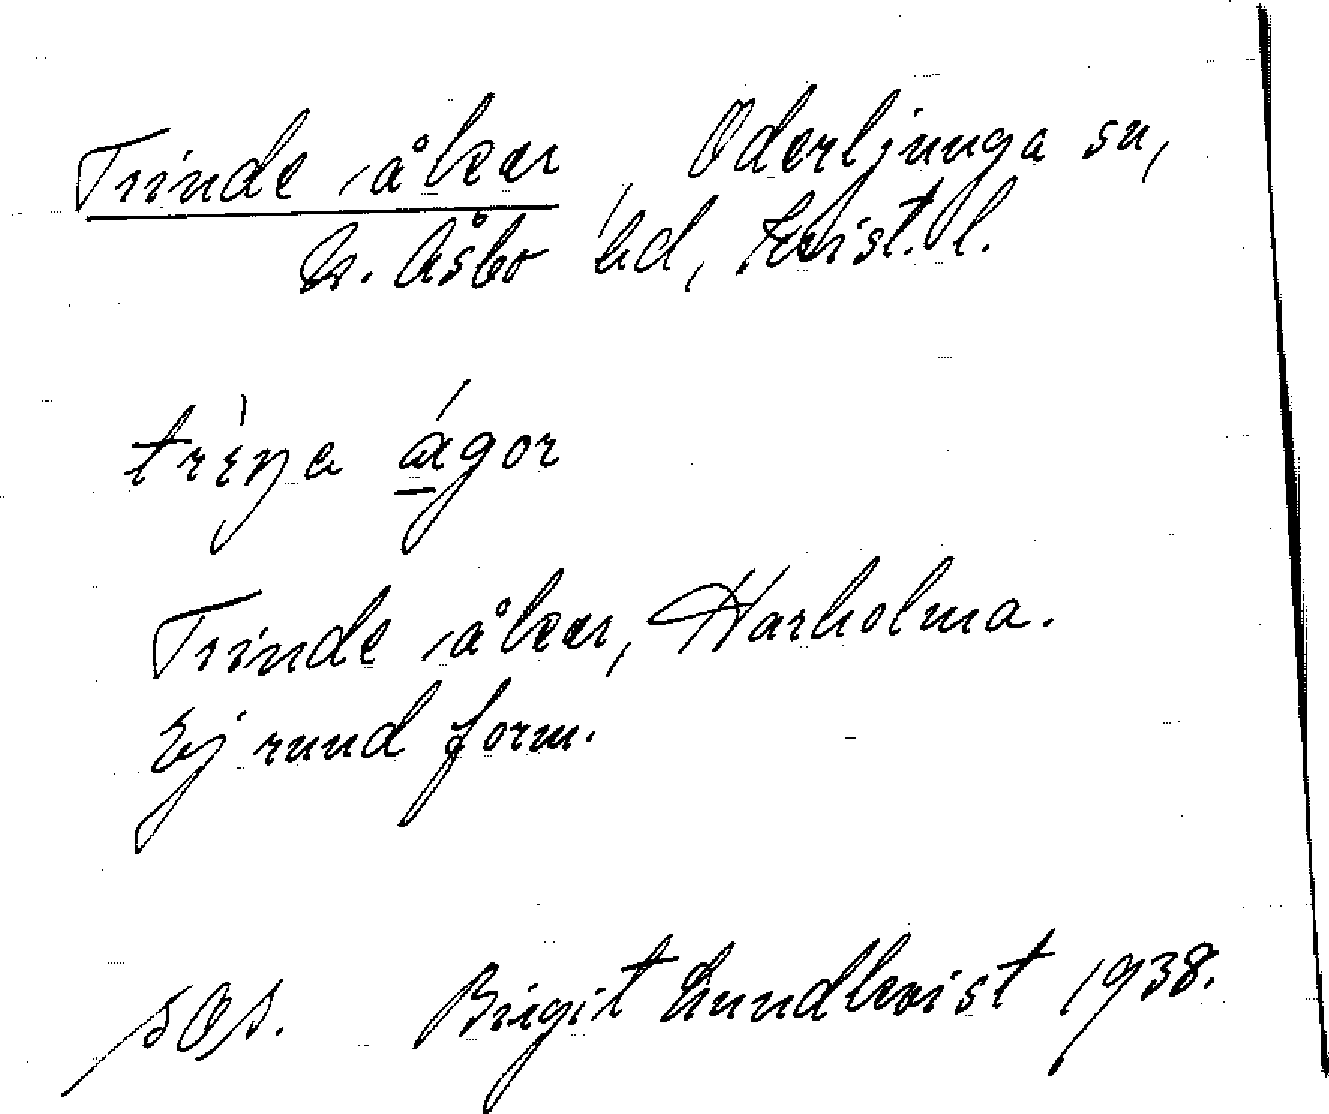 Trinde åker, Oderljunga sn,
N. Åsbo hd, Krist. l.
trìŋa ágor
Trinde åker, Harholma.
Ej rund form.
Birgit Lundkvist 1938.